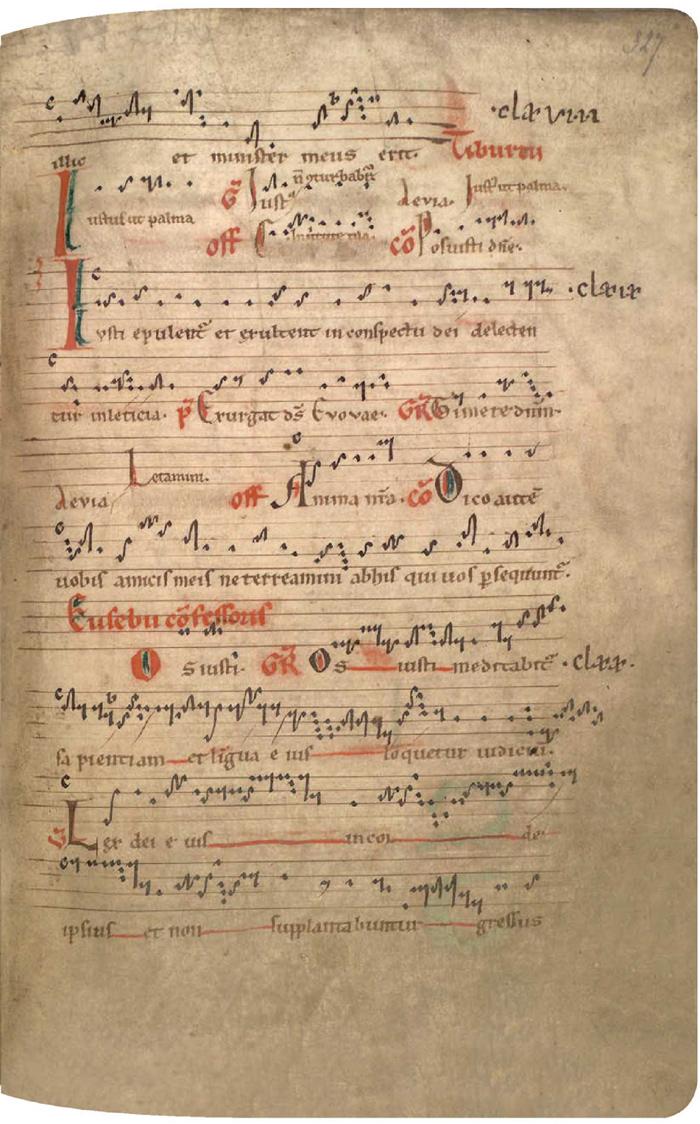 327
illic et minister meus erit. Tiburtii
Iustus ut palma G̃ Iust⁹ n̄ oturbabit̃ Aeuia. Iust⁹ ut palma.
off In uirtute tua. cō Posuisti dn̄e.
Iusti epulent̃ et exultent in conspectu dei delecten
tur in leticia. p̃ Exurgat ds̄ Evovae. GR̃ Timete dnm̄.
Aeuia Letamini. off Anima nr̄a. cō Dico autē
uobis amicis meis ne terreamini abhis qui uos psequunt̃.
Eusebii cōfessoris
Os iusti. GR̃ Os iusti meditabit̃
sapientiam et lingua eius loquetur iudiciū.
V Lex dei eius in cor de
ipsius et non supplantabuntur gressus